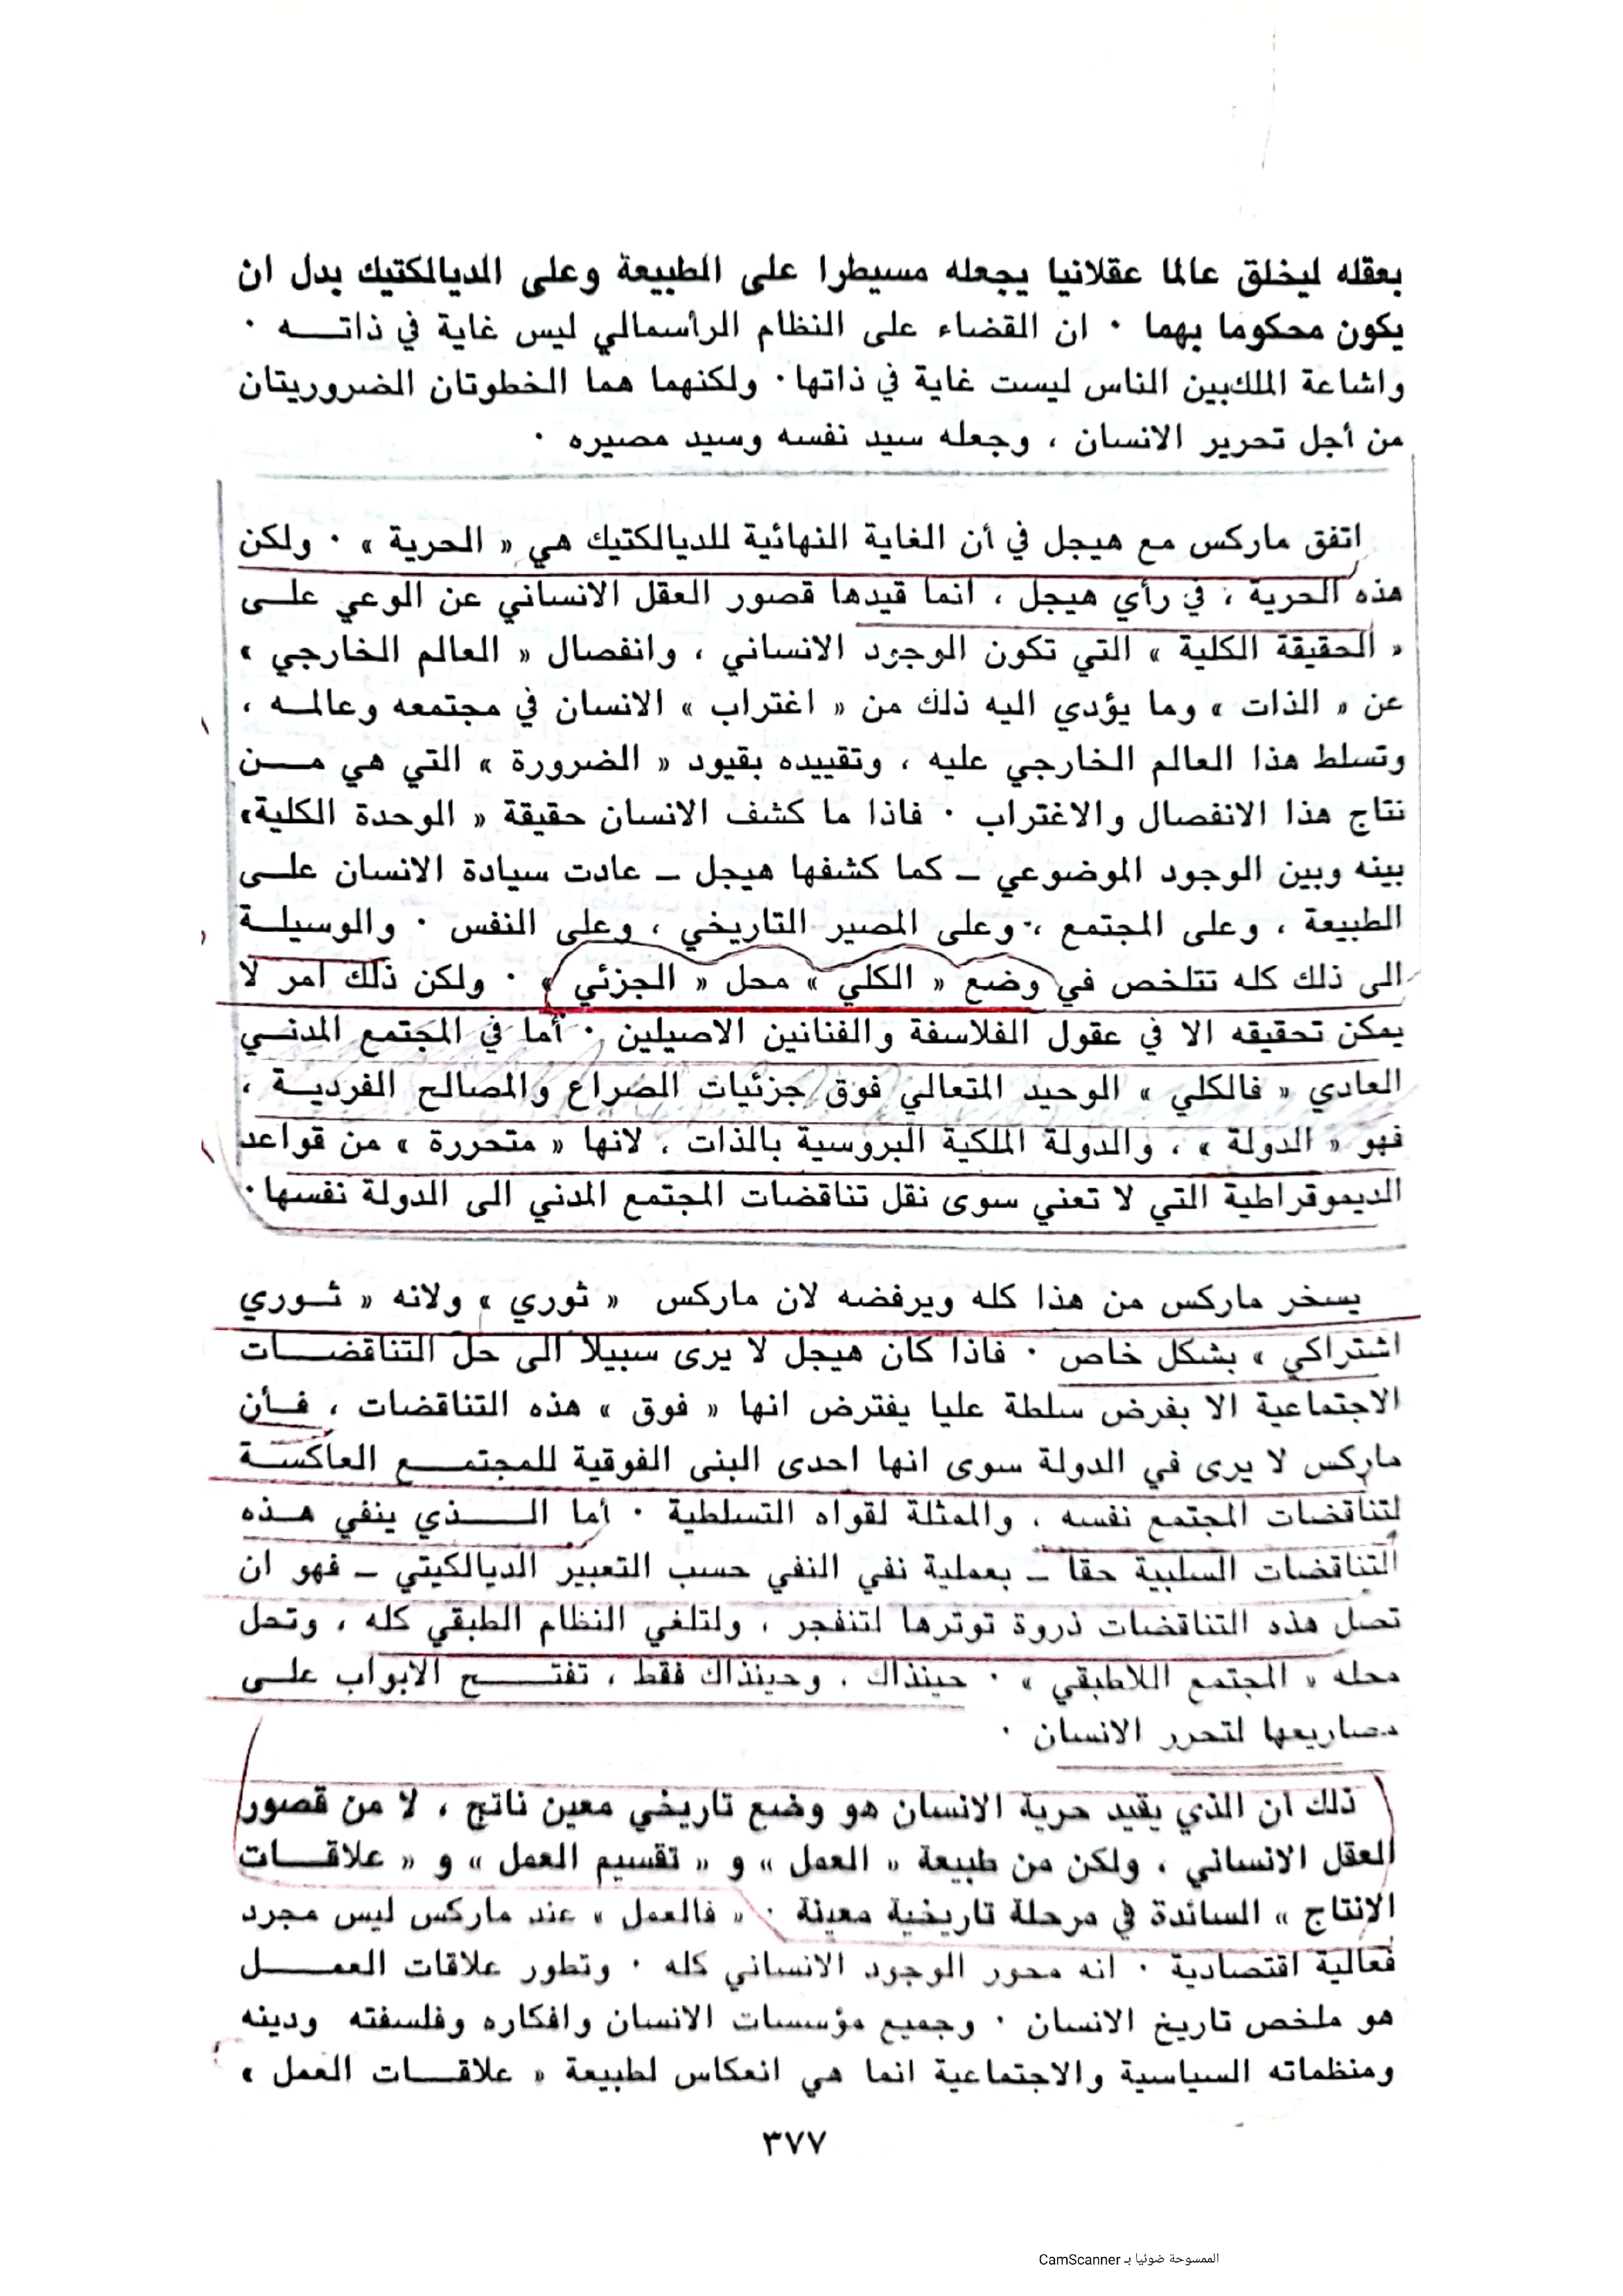 بعقله ليخلق عالما عقلانيا يجعله مسيطرا على الطبيعة وعلى الديالكتيك بدل ان
يكون محكوما بهما ٠ ان القضاء على النظام الرأسمالي ليس غاية في ذاته ٠
واشاعة الملك بين الناس ليست غاية في ذاتها ٠ ولكنهما هما الخطوتان الضروريتان
من أجل تحرير الانسان ، وجعله سيد نفسه وسيد مصيره ٠
اتفق ماركس مع هيجل في أن الغاية النهائية للديالكتيك هي « الحرية » ٠ ولكن
هذه الحرية ، في رأي هيجل ، انما قيدها قصور العقل الانساني عن الوعي على
« الحقيقة الكلية » التي تكون الوجود الانساني ، وانفصال « العالم الخارجي »
عن « الذات » وما يؤدي اليه ذلك من « اغتراب » الانسان في مجتمعه وعالمه ،
وتسلط هذا العالم الخارجي عليه ، وتقييده بقيود « الضرورة » التي هي من
نتاج هذا الانفصال والاغتراب ٠ فاذا ما كشف الانسان حقيقة « الوحدة الكلية»
بينه وبين الوجود الموضوعي ـ كما كشفها هيجل ـ عادت سيادة الانسان على
الطبيعة ، وعلى المجتمع ، وعلى المصير التاريخي ، وعلى النفس ٠ والوسيلة
الى ذلك كله تتلخص في وضع « الكلي » محل « الجزئي » ٠ ولكن ذلك امر لا
يمكن تحقيقه الا في عقول الفلاسفة والفنانين الاصيلين ٠ أما في المجتمع المدني
العادي « فالكلي » الوحيد المتعالي فوق جزئيات الصراع والمصالح الفردية ،
فهو « الدولة » ، والدولة الملكية البروسية بالذات ، لانها « متحررة » من قواعد
الديموقراطية التي لا تعني سوى نقل تناقضات المجتمع المدني الى الدولة نفسها ٠
يسخر ماركس من هذا كله ويرفضه لان ماركس « ثوري » ولانه « ثوري
اشتراكي » بشكل خاص ٠ فاذا كان هيجل لا يرى سبيلا الى حل التناقضات
الاجتماعية الا بفرض سلطة عليا يفترض انها « فوق » هذه التناقضات ، فأن
ماركس لا يرى في الدولة سوى انها احدى البنى الفوقية للمجتمع العاكسة
لتناقضات المجتمع نفسه ، والممثلة لقواه التسلطية ٠ أما الذي ينفي هذه
التناقضات السلبية حقا ـ بعملية نفي النفي حسب التعبير الديالكيتي ـ فهو ان
تصل هذه التناقضات ذروة توترها لتنفجر ، ولتلغي النظام الطبقي كله ، وتحل
محله « المجتمع اللاطبقي » ٠ حينذاك ، وحينذاك فقط ، تفتح الابواب على
مصاريعها لتحرر الانسان ٠
ذلك ان الذي يقيد حرية الانسان هو وضع تاريخي معين ناتج ، لا من قصور
العقل الانساني ، ولكن من طبيعة « العمل » و « تقسيم العمل » و « علاقات
الانتاج » السائدة في مرحلة تاريخية معينة ٠ « فالعمل » عند ماركس ليس مجرد
فعالية اقتصادية ٠ انه محور الوجود الانساني كله ٠ وتطور علاقات العمل
هو ملخص تاريخ الانسان ٠ وجميع مؤسسات الانسان وافكاره وفلسفته ودينه
ومنظماته السياسية والاجتماعية انما هي انعكاس لطبيعة « علاقات العمل »
٣٧٧
الممسوحة ضوئيا بـ CamScanner